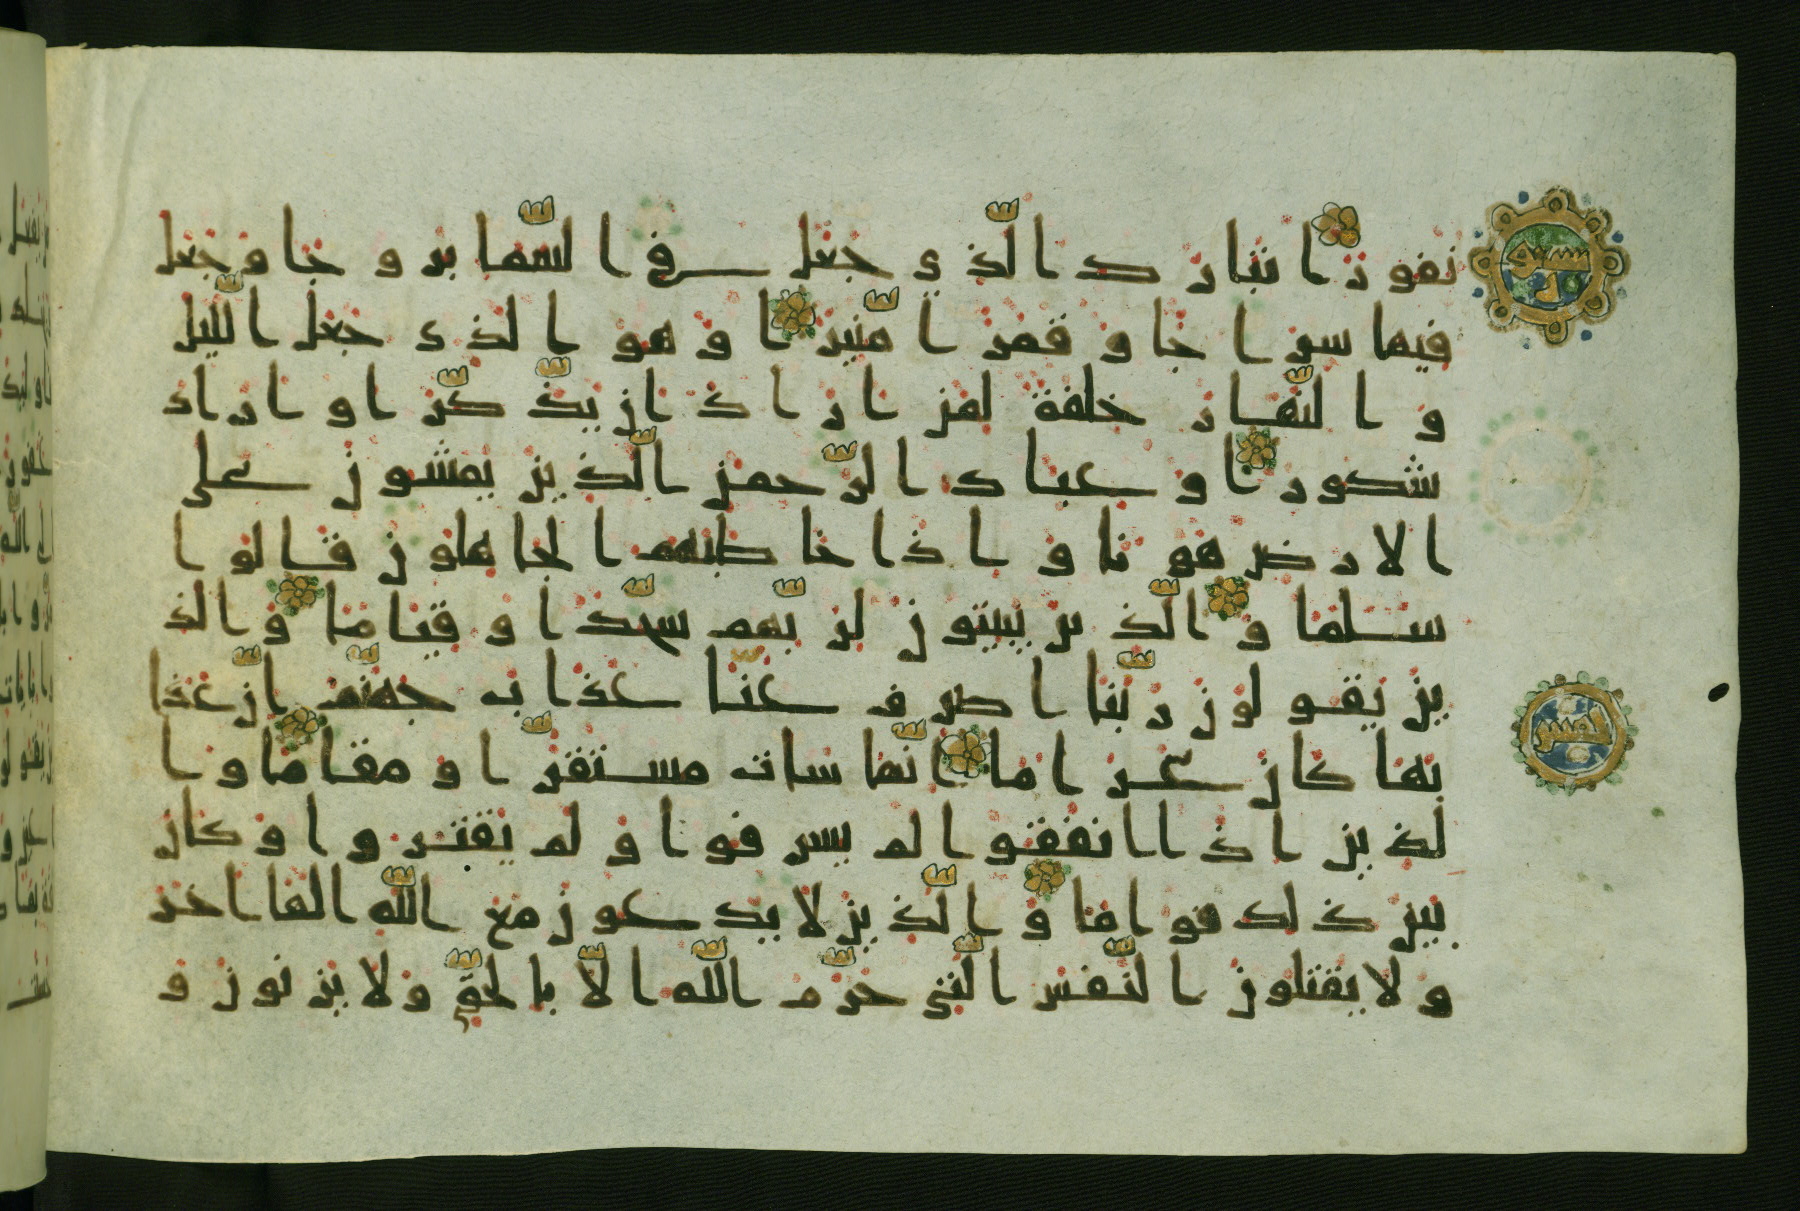 نفورا تبارك الذي جعل في السما بروجا وجعل
فيها سراجا وقمرا منيرا وهو الذي جعل الليل
والنهار خلفة لمن اراد ان يذّكّر او اراد
شكورا وعباد الرّحمن الّذين يمشون على
الارض هونا واذا خاطبهم الجاهلون قالوا
سلما والّذين يبيتون لربّهم سجّدا وقياما والذ
ين يقولون ربّنا اصرف عنّا عذاب جهنّم انّ عذا
بها كان غراما انّها سات مستقرّا ومقاما وا
لذين اذا انفقوا لم يسرفوا ولم يقتروا وكان
بين ذلك قواما والّذين لا يدعون مع اللّه الها اخر
ولا يقتلون النّفس الّتي حرّم اللّه الّا بالحقّ ولا يزنون و
ستون
خمس